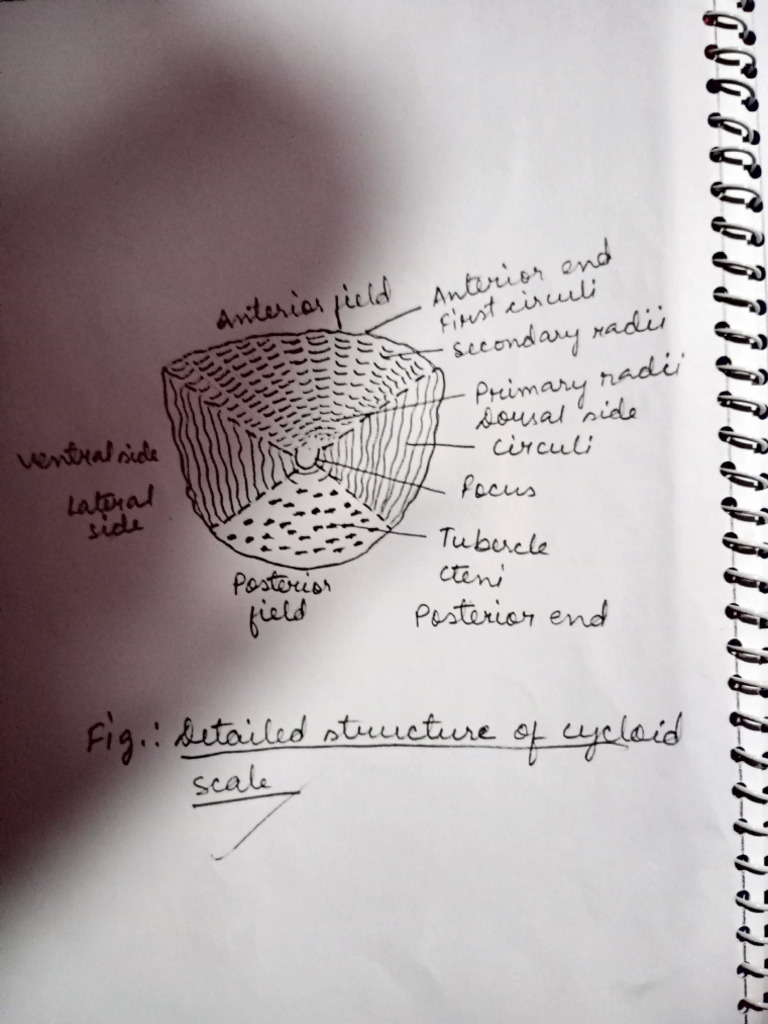 Anterior field
Anterior end
First circuli
Secondary radii
Primary radii
Dorsal side
Circuli
Ventral side
Lateral
side
Focus
Tubercle
Cteni
Posterior
field
Posterior end
Fig.: Detailed structure of cycloid
scale